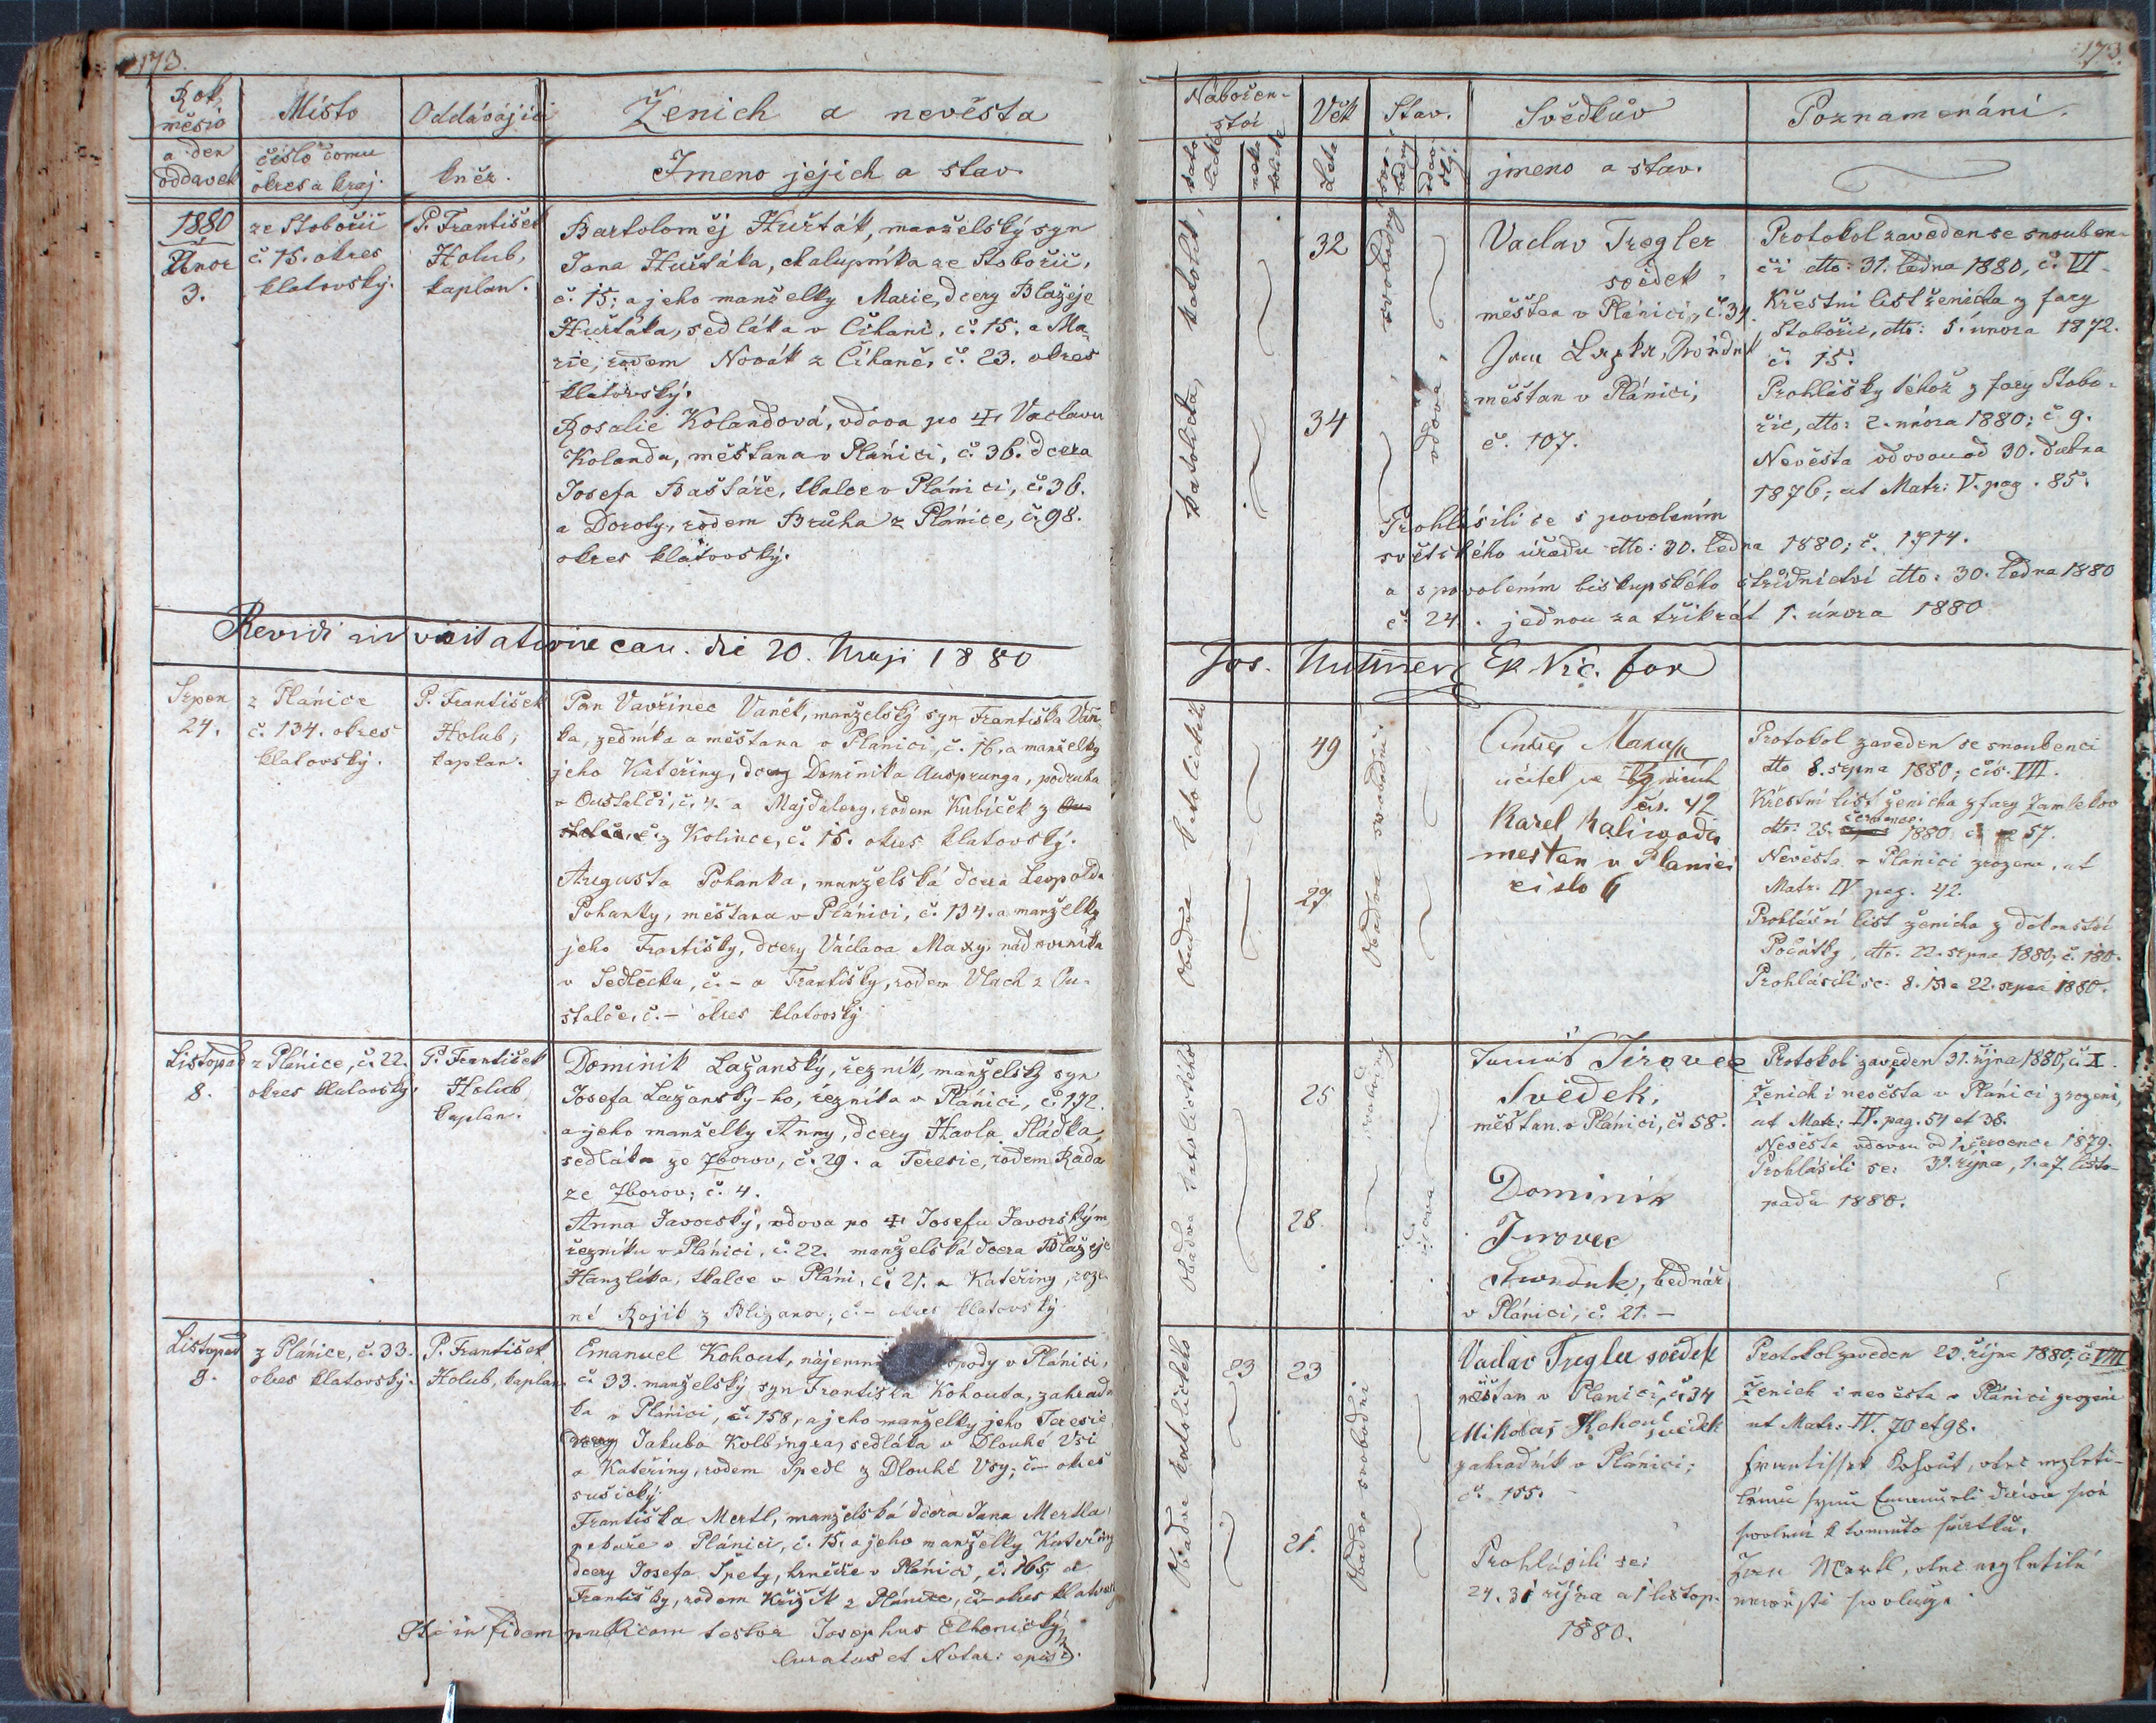 173.
Rok,
měsíc
a den
oddavek
Místo
číslo domu
okres a kraj.
Oddávající
kněz.
Ženich a nevěsta
Jmeno jejich a stav.
1880
Únor
3.
ze Stobořic
č. 15. okres
klatovský.
P. František
Holub,
kaplan.
Bartoloměj Huřták, manželský syn
Jana Huřtáka, chalupníka ze Stobořic,
č. 15; a jeho manželky Marie, dcery Blažeje
Huřtáka, sedláka v Číhani, č. 15. a Ma-
rie, rodem Novák z Číhaně, č. 23. okres
klatovský.
Rosalie Kolandová, vdova po Václavu
Kolanda, měšťana v Plánici, č. 36. dcera
Josefa Baštáře, tkalce v Plánici, č. 36.
a Doroty, rodem Brůha z Plánice, č. 98.
okres klatovský.
Revidi in visitatione can. die 20. Maji 1880
Srpen
24.
z Plánice
č. 134. okres
klatovský.
P. František
Holub,
kaplan.
Pan Vavřinec Vaněk, manželský syn Františka Vaň-
ka, zedníka a měšťana v Plánici, č. 16. a manželky
jeho Kateřiny, dcery Dominika Ausprunga, podruha
v Oustalči, č. 4. a Majdaleny, rodem Kubíček z
z Kolince, č. 15. okres klatovský.
Augusta Pohanka, manželská dcera Leopolda
Pohanky, měšťana v Plánici, č. 134. a manželky
jeho Františky, dcery Václava Maxy,
v Sedlečku, č. – a Františky, rodem Vlach z Ou-
stalče, č. – okres klatovský
Listopad
8.
z Plánice, č. 22.
okres klatovský.
P. František
Holub
kaplan.
Dominik Lažanský, řezník, manželský syn
Josefa Lažanský-ho, řezníka v Plánici, č. 172.
a jeho manželky Anny, dcery Havla Sládka,
sedláka ze Zborov, č. 29. a Teresie, rodem Rada
ze Zborov, č. 4.
Anna Javorský, vdova po Josefu Javorským,
řezníku v Plánici, č. 22. manželská dcera Blažeje
Hanzlíka, tkalce v Pláni, č. 21. a Kateřiny, roze-
né Rojik z Blizanov, č. – okres klatovský
Listopad
9.
z Plánice, č. 33.
okres klatovský.
P. František
Holub, kaplan.
Emanuel Kohout, nájemn spody v Plánici,
č. 33. manželský syn Františka Kohouta, zahrad
ka v Plánici, č. 158, a jeho manželky jeho Teresie
dcery Jakuba Kolbingra, sedláka v Dlouhé Vsi
a Kateřiny, rodem Spedl z Dlouhé Vsy, č – okres
sušický.
Františka Mertl, manželská dcera Jana Mertla,
pekaře v Plánici, č. 15. a jeho manželky Kateřiny
dcery Josefa Špety, krnčíře v Plánici, č. 165, a
Františky, rodem Křižík z Plánice, č – okres klatovský
Ita in fidem publicam testor Josephus
Curatus et Notar: episc.
173.
Nábožen-
ství
kato-
lické
neka-
tolické
Věk
Leta
Stav.
svo-
bodný
vdov-
ský.
Svědkův
jmeno a stav.
Poznamenání.
katolík,
katolička,
32
34
svobodný
vdova
Vaclav Tregler
svědek
měšťan v Plánici, č. 34.
Jan
měšťan v Plánici,
č. 107.
Protokol zaveden se snouben-
ci dto: 31. ledna 1880, č. VI.
Křestní list ženicha z fary
Stobořic, dto: 5. února 1872.
č. 15.
Prohlášky téhož z fary Stobo-
řic, dto: 2. února 1880; č. 9.
Nevěsta vdovou od 30. dubna
1876; ut Matr: V. pag. 85.
Prohlásili se s povolením
světského úřadu dto: 30. ledna 1880; č. 1714.
a s povolením biskupského střídnictví dto: 30. ledna 1880
č. 24. jednou za třikrát 1. února 1880
Jos. Ep. Vic. for
Obadva katolického
49
27
Obadva svobodni.
Maxup
učitel ve
čís. 42
Karel Kalivoda
mestan v Planici
cislo 6
Protokol zaveden se snoubenci
dto 8. srpna 1880; čís. VIII.
Křestní list ženicha z fary Zamlekov
dto: 25. července 1880 č. 57.
Nevěsta v Plánici zrozena, ut
Matr. IV pag. 42.
Prohlášní list ženicha z děkanství
Počátky, dto. 22. srpna 1880, č. 180.
Prohlásili se: 8. 15. a 22. srpna 1880.
Obadva katolického
25
28.
svobodný
vdova
Tumáš Jirovec
Svědek,
měšťan. v Plánici, č. 58.
Dominik
Jirovec
Swědek, bednář
v Plánici, č. 21. –
Protokol zaveden 31. října 1880, č. X.
Ženich i nevěsta v Plánici zrozeni,
ut Matr: IV. pag. 54 et 38.
Nevěsta vdovou od 1. července 1879.
Prohlásili se: 31. října, 1. a 7. listo-
padu 1880.
Obadva katolického
23
23
21.
Obadva svobodni
Vaclav Tregler svědek
měštan v Planici, č. 34
Mikolaš Kohout svědek
zahradník v Plánici;
č. 155.
Prohlásili se:
24. 31 října a 1 listop.
1880.
Protokol zaveden 29. října 1880; č. VIII
Ženich i nevěsta v Plánici zrozeni
ut Matr: IV. 70 et 98.
Frantissek Kohout, otec nezleti-
lému synu Emanueli dává své
svolení k tomuto sňatku.
Jan Mertl, otec nezletilé
nevěsti svoluje